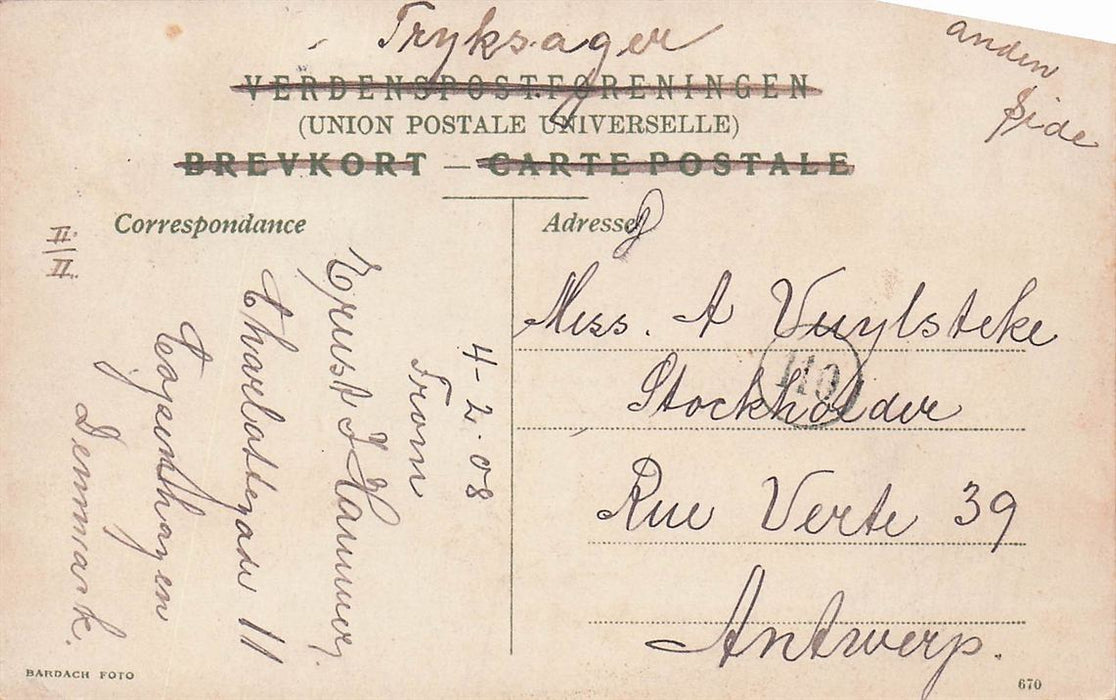 Tryksager
anden
Side
VERDENSPOSTFORENINGEN
(UNION POSTALE UNIVERSELLE)
BREVKORT — CARTE POSTALE
Correspondance
Adresse
II/II
4-2.08
From
Ejnust J Hammer,
Charlottegade 11
Copenhagen
Denmark.
Miss. A Vuylsteke
Stockholder
110
Rue Verte 39
Antwerp.
BARDACH FOTO
670